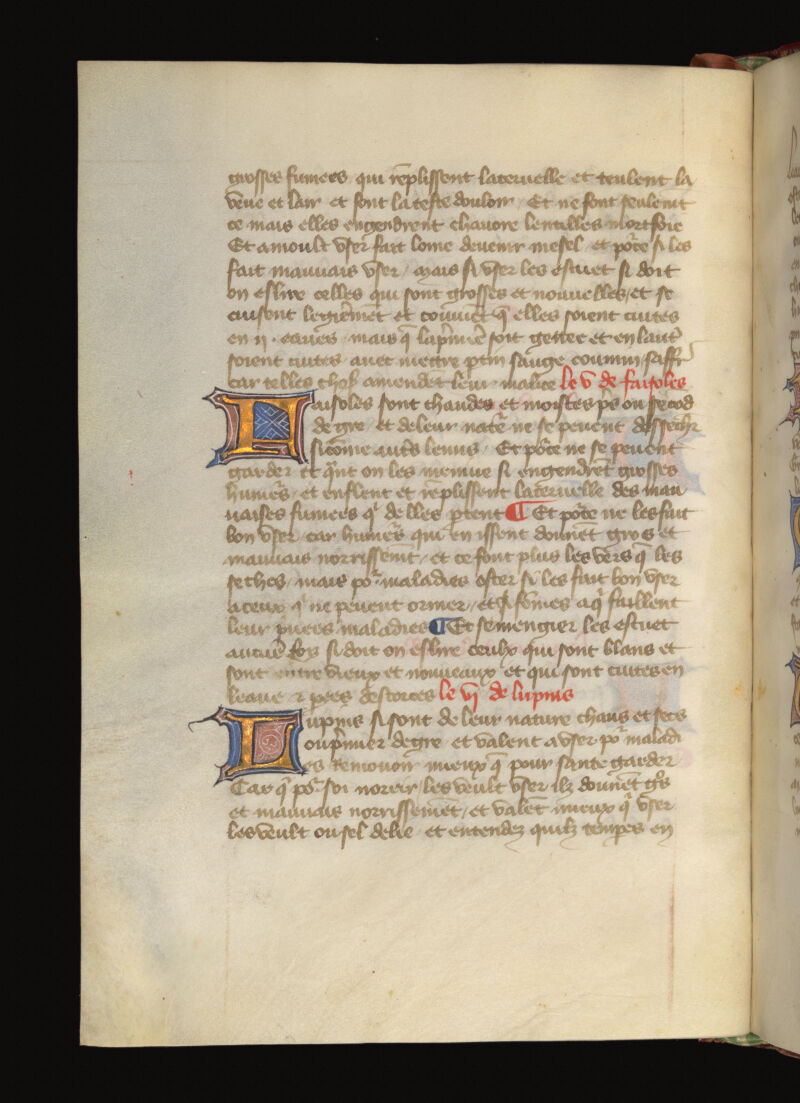 grosses fumees qui rēplissent laceruelle et teulent la
veue et lair et font la teste douloir Et ne font seulemt
ce mais elles engendrent chancre lentilles mortfoie
Et amoult vser fait lome deuenir mesel et pōce si les
fait mauuais vser / mais si vser les estuet si doit
on eslire celles qui sont grosses et nouuelles / et se
cuisent legierem̄et et couuiēt q̄ elles soient cuites
en ii . eaues mais q̄ lap̄miē soit gettee et en laut̄
soient cuites auec mettre ptin sauge coumin saffr̄
car telles chos amendēt leur malice le v de faisoles
Faisoles sont chaudes et moistes ps ou secōd
degre et deleur natē ne se peuent dessechr
sicōme aut̄s leuns / Et pōce ne se peuent
garder et q̄nt on les mēiue si engendrēt grosses
humeurs et enflent et rēplissent laceruelle des mau
uaises fumees q̄ delles ptent ¶ Et pōce ne les fait
bon vser car humeurs qui en issent donnēt gros et
mauuais norrissemt / et ce font plus les vers q̄ les
seches / mais po maladies oster si les fait bon vser
a ceulx q̄ ne peuent oriner / et a fem̄es aq̄ faillent
leur priuees maladies ¶ Et se mengier les estuet
aucue fois si doit on eslire ceulx qui sont blans et
sont entre vieux et nouueaux et qui sont cuites en
leaue et pees descorces le vi de lupins
Lupins si sont de leur nature chaus et secs
ou p̄mier degre et valent a vser po maladi
es remouoir mieux q̄ pour sante garder
Car q̄ po soi norrir les veult vser ilz donnēt gs
et mauuais norrissemēt / et valēt mieux q̄ vser
les veult ou sel delie et entendez quilz tempes en